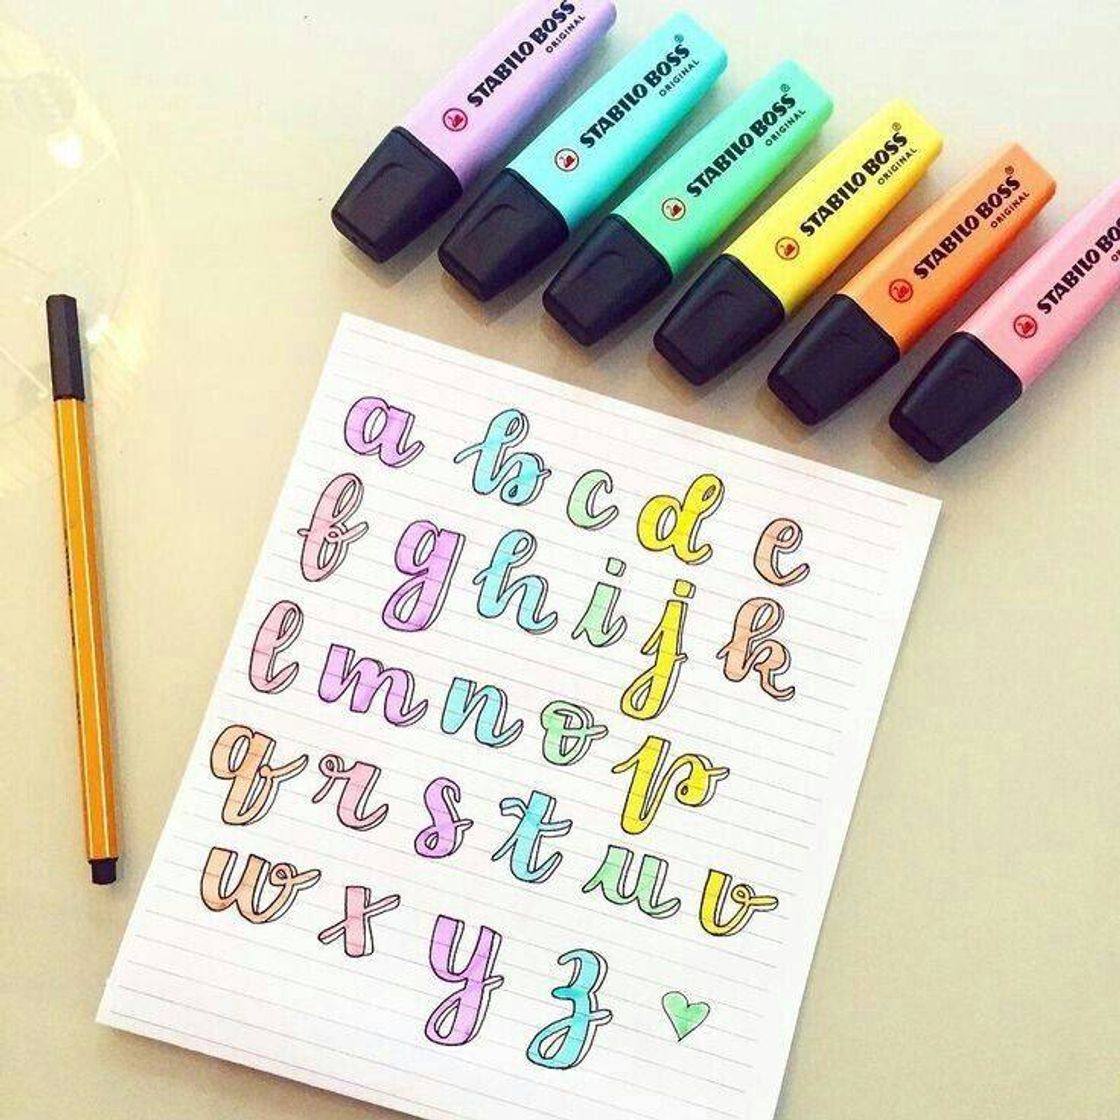 STABILO BOSS
ORIGINAL
STABILO BOSS®
ORIGINAL
STABILO BOSS®
ORIGINAL
STABILO BOSS®
ORIGINAL
STABILO BOSS®
ORIGINAL
STABILO BOSS
a b c d e
f g h i j k
l m n o p
q r s t u v
w x y z